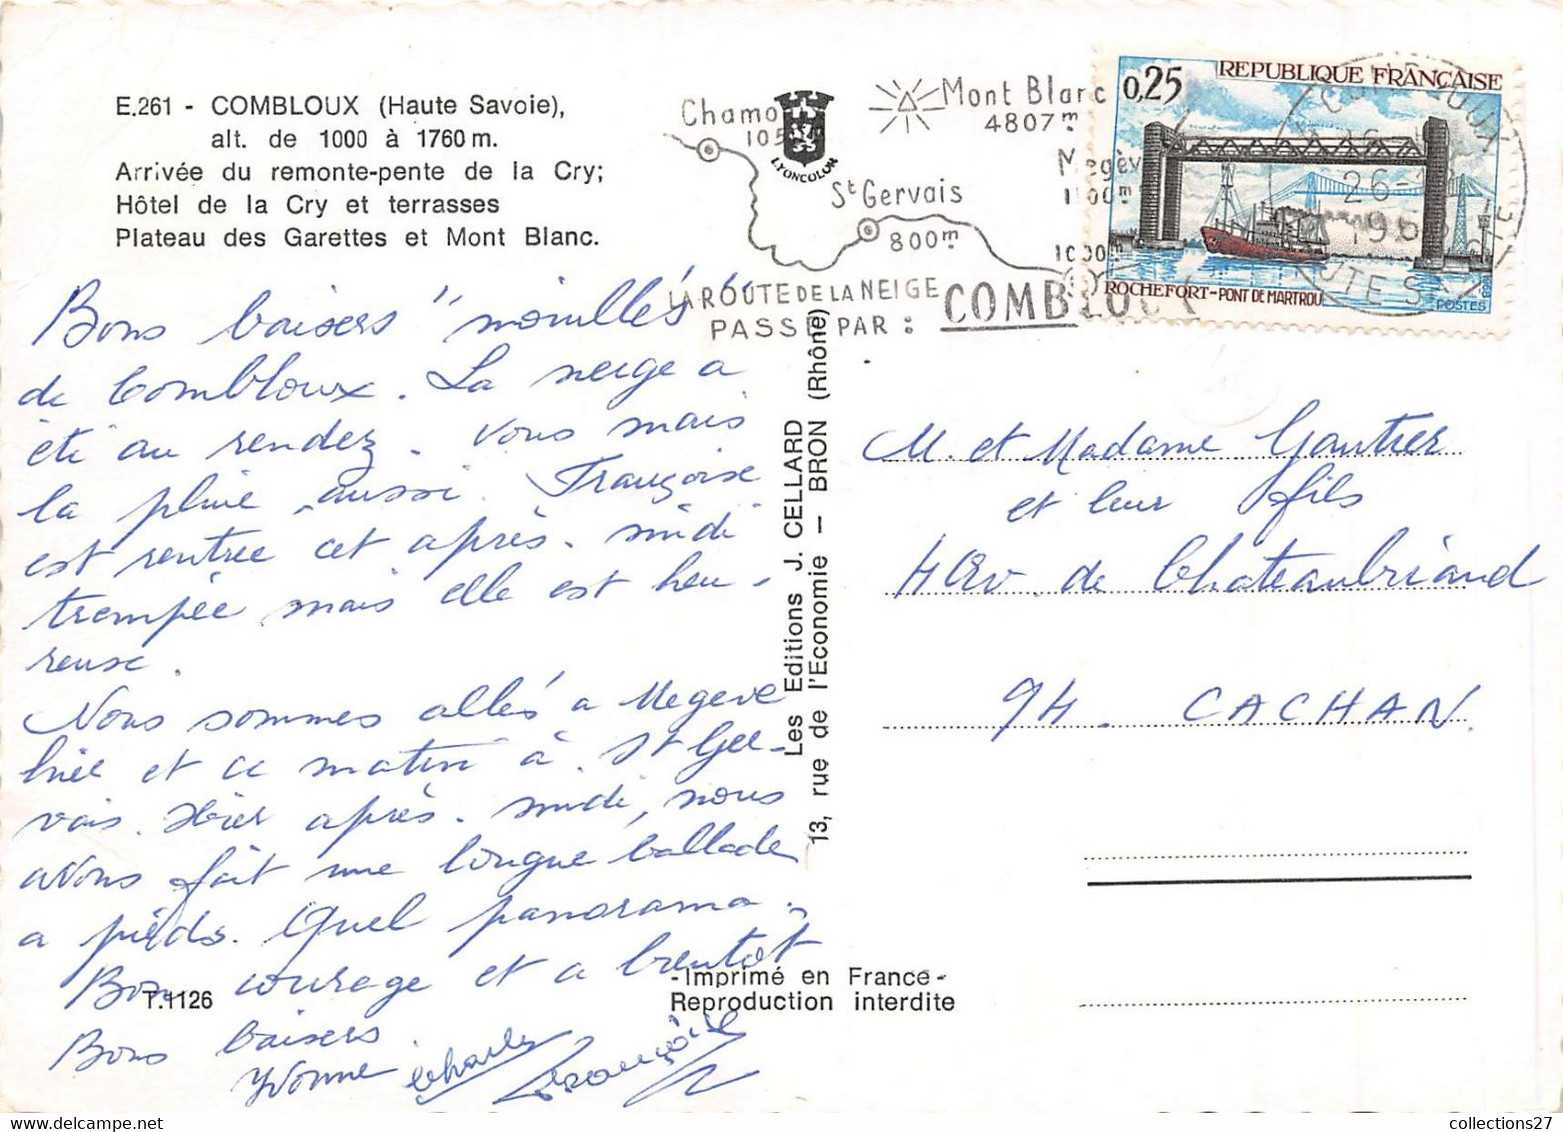 E.261 - COMBLOUX (Haute Savoie),
alt. de 1000 à 1760 m.
Arrivée du remonte-pente de la Cry;
Hôtel de la Cry et terrasses
Plateau des Garettes et Mont Blanc.
Bons baisers "mouillés"
de Combloux. La neige a
été au rendez-vous mais
la pluie aussi. Françoise
est rentrée cet après-midi
trempée mais elle est heu-
reuse.
Nous sommes allés a Megeve
hier et ce matin à St Ger-
vais. Hier après-midi, nous
avons fait une longue ballade
a pieds. Quel panorama.
Bon courage et a bientôt
Bons baisers.
Yvonne Charles Françoise
T.1126
LYONCOLOR
Les Editions J. CELLARD
13, rue de l'Economie — BRON (Rhône)
-Imprimé en France-
Reproduction interdite
Chamo
Mont Blanc
4807m
St Gervais
800m
Megève
1100m
1000m
LA ROUTE DE LA NEIGE
PASSE PAR : COMBLOUX
0,25 REPUBLIQUE FRANÇAISE
ROCHEFORT-PONT DE MARTROU
POSTES
M. et Madame Gautier
et leur fils
4 Av. de Chateaubriand
94. CACHAN
collections27